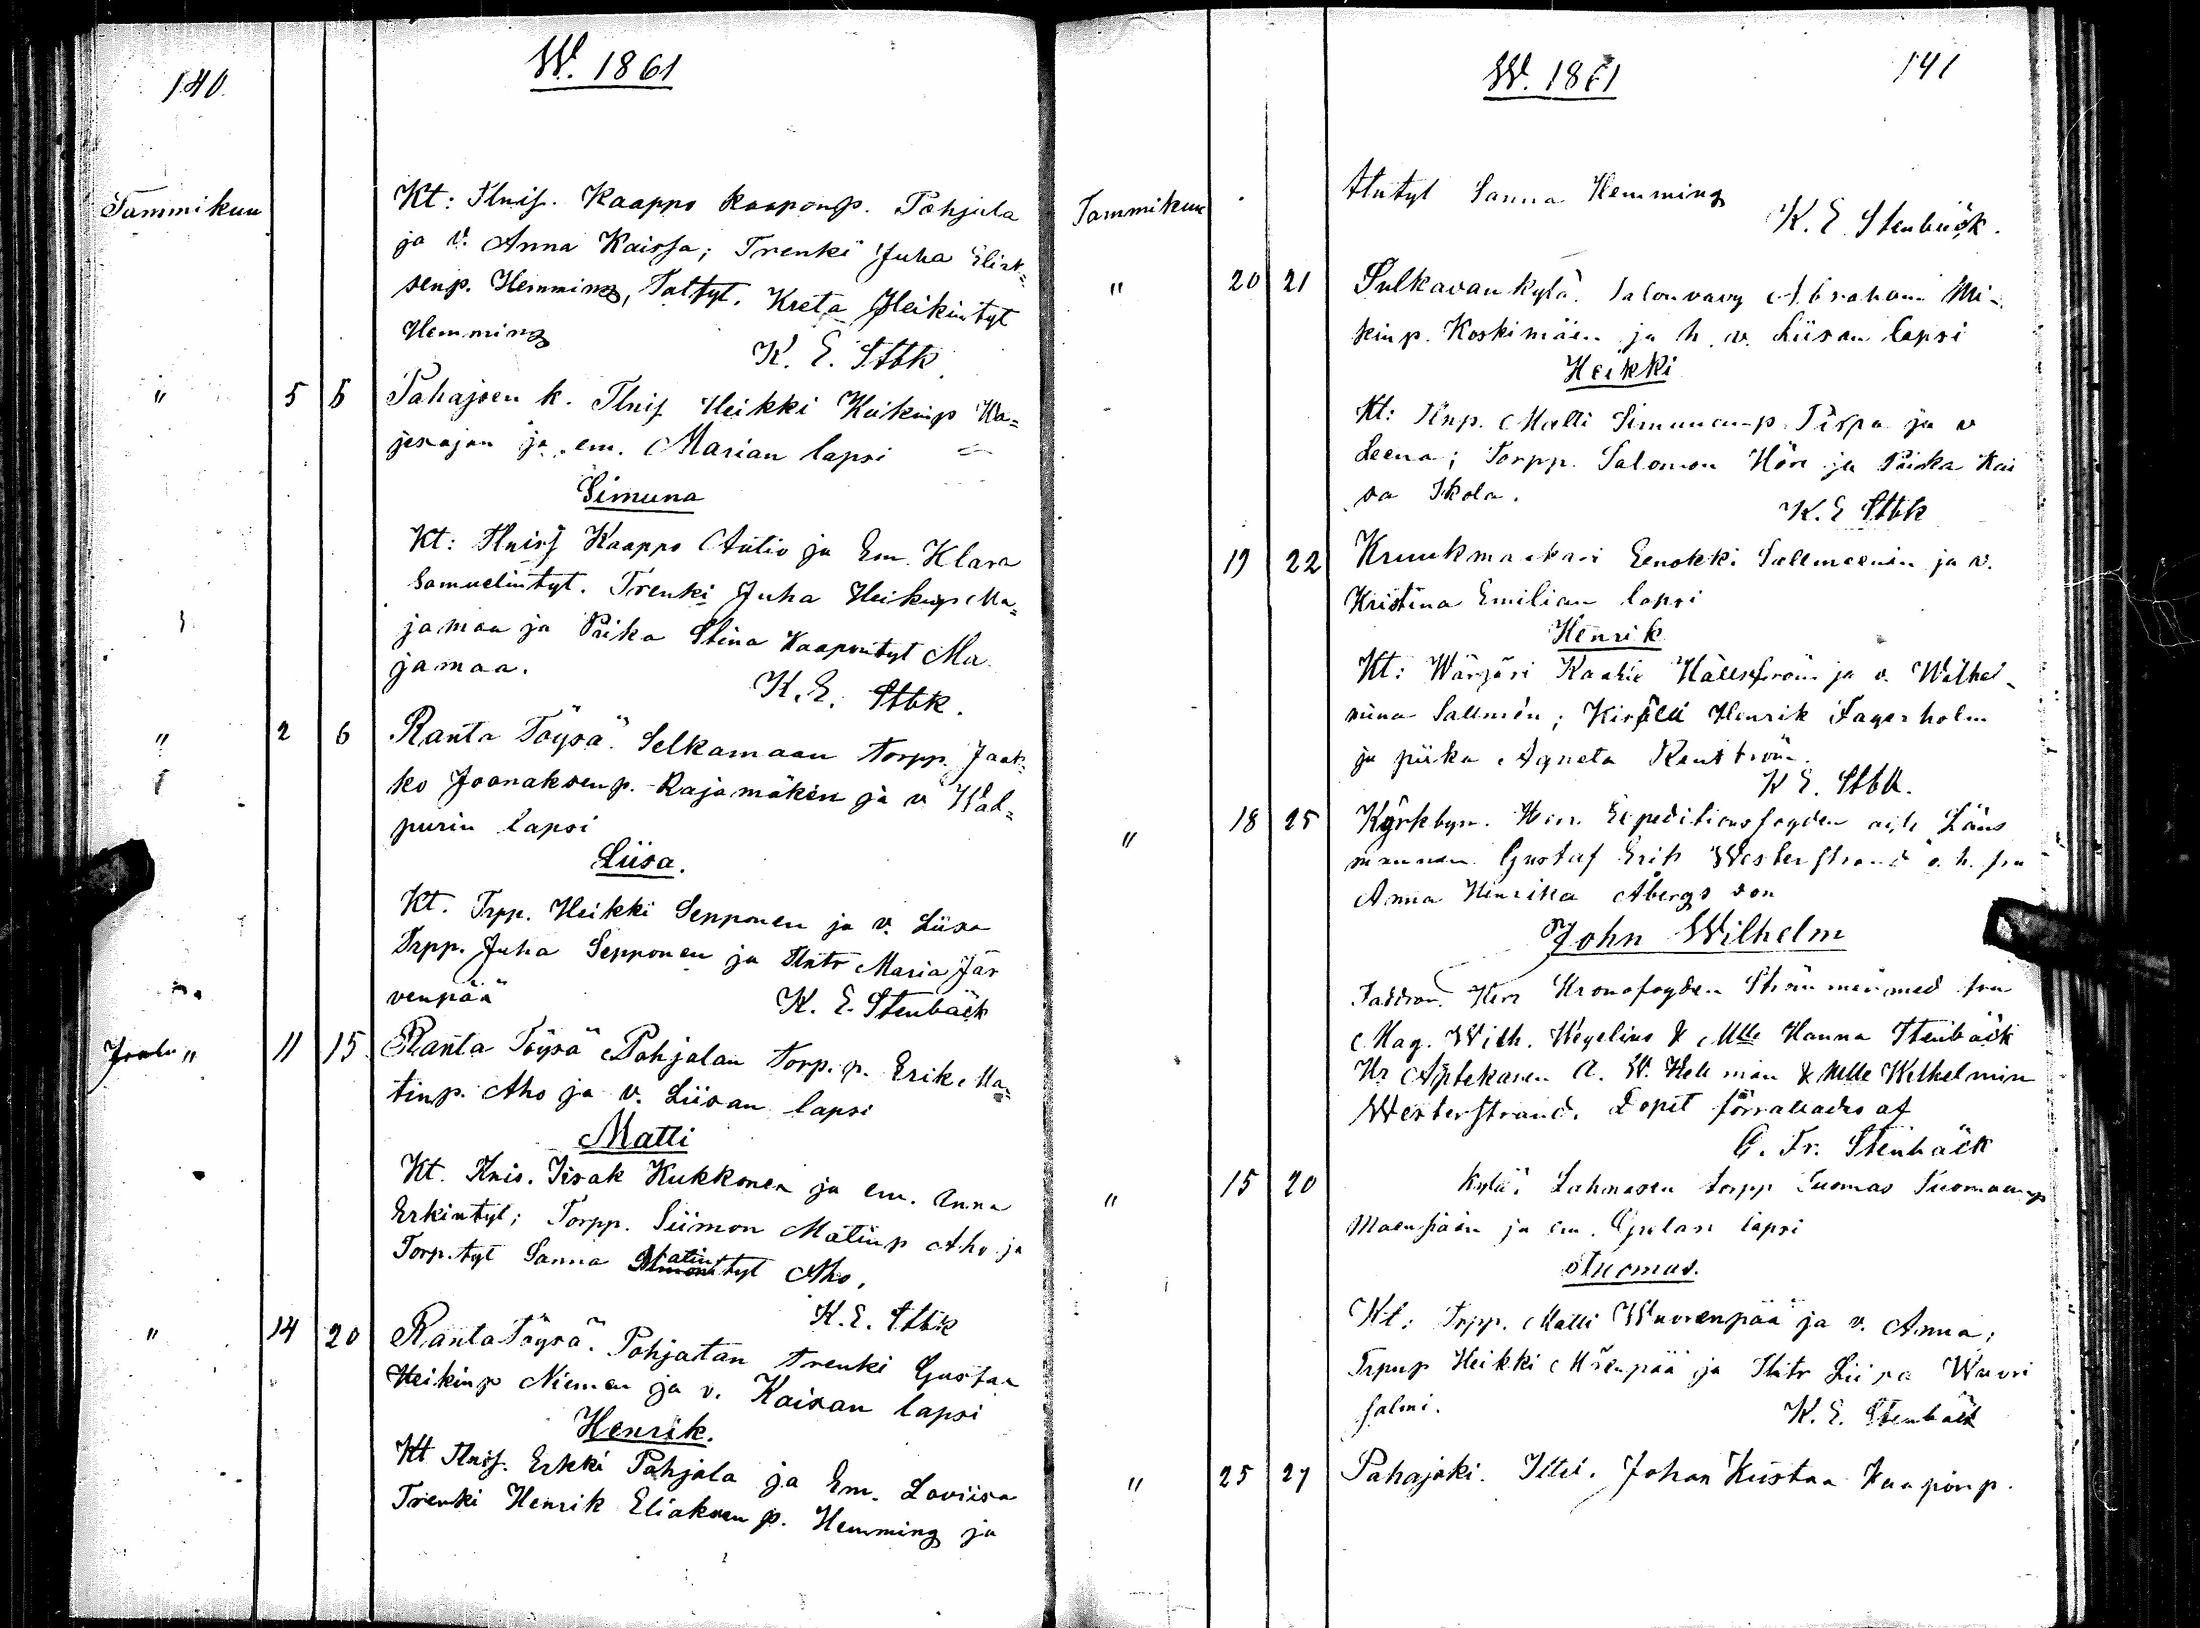 140
W. 1861
Tammikuu
Kt: Tlnis. Kaappo Kaaponp. Pohjala
ja v. Anna Kaissa; Trenki Juha Eliak=
senp. Hemming, Taltyt. Kreta Heikintyt
Hemming
K. E. Stbk
" 5 6 Pahajoen k. Tlnis Heikki Heikinp Ka=
jesajan ja em. Marian lapsi
Simuna
Kt: Tlnis Kaappo Autio ja Em. Klara
Samuelintyt. Trenki Juha Heikinp Ma=
jamaa ja Piika Stina Kaapontyt Ma
jamaa.
K. E. Stbk.
" 2 6 Ranta Töysä. Selkamaan torpp. Jaak=
ko Joonaksenp. Rajamäken ja v Wal=
purin lapsi
Liisa.
Kt. Trpp. Heikki Sepponen ja v. Liisa
Trpp. Juha Sepponen ja Tlntr Maria Jär
venpää
K. E. Stenbäck
Joulu " 11 15 Ranta Töysä Pohjalan Torp.p. Erik Ma=
tinp. Aho ja v. Liisan lapsi
Matti
Kt. Tnis. Iisak Kukkonen ja em. Anna
Erkintyt; Torpp. Siimon Matinp Aho ja
Torp.tyt Sanna Matintyt Aho.
K. E. Stbk
" 14 20 Ranta Töysä. Pohjatan trenki Gustaa
Heikinp Niemen ja v. Kaisan lapsi
Henrik.
Kt Tlnis. Erkki Pohjala ja Em. Loviisa
Trenki Henrik Eliaksen p. Hemming ja
W. 1861
141
Tammikuu
tlntyt Sanna Hemming
K. E. Stenbäck.
" 20 21 Sulkavankylä. Talonvavy Abraham Mi-
kinp. Koskimäen ja h. v. Liisan lapsi
Heikki
Kt: Tlnp. Matti Simunanp ja v
Leena; Torpp. Salomon ja Piika Kai
sa Ikola.
K. E Stbk
19 22 Kruukmaakari Eenokki Sallmeenin ja v.
Kristina Emilian lapsi
Henrik
Kt: Wärjäri Kaakle Hällström ja v. Wilhel-
mina Sallmén; Kisälli Henrik Fagerholm
ja piika Agneta Renström.
K E. Stbk.
" 18 25 Kyrkbyn. Herr Expeditionsfogden och Läns
mannen Gustaf Erik Westerstrand o. h. fru
Anna Henrika Åbergs son
John Wilhelm
Faddrar. Herr Kronofogden med fru
Mag. Wilh. Hegelius & Mlle Hanna Stenbäck
Hr Aptekaren A. W. Hellman & Mlle Wilhelmin
Westerstrand. Dopet förrättades af
C. Fr. Stenbäck
" 15 20 Kylä. Lahnasen torpp Tuomas Tuomaanp
Mäenpään ja em. Gretan lapsi
Tuomas.
Kt: Trpp. Matti Wuorenpää ja v. Anna;
Trpnp Heikki Mäenpää ja Tlntr Liisa Wuori
salmi.
K. E. Stenbäck
" 25 27 Pahajoki. Itll. Johan Kustaa Kaaponp.